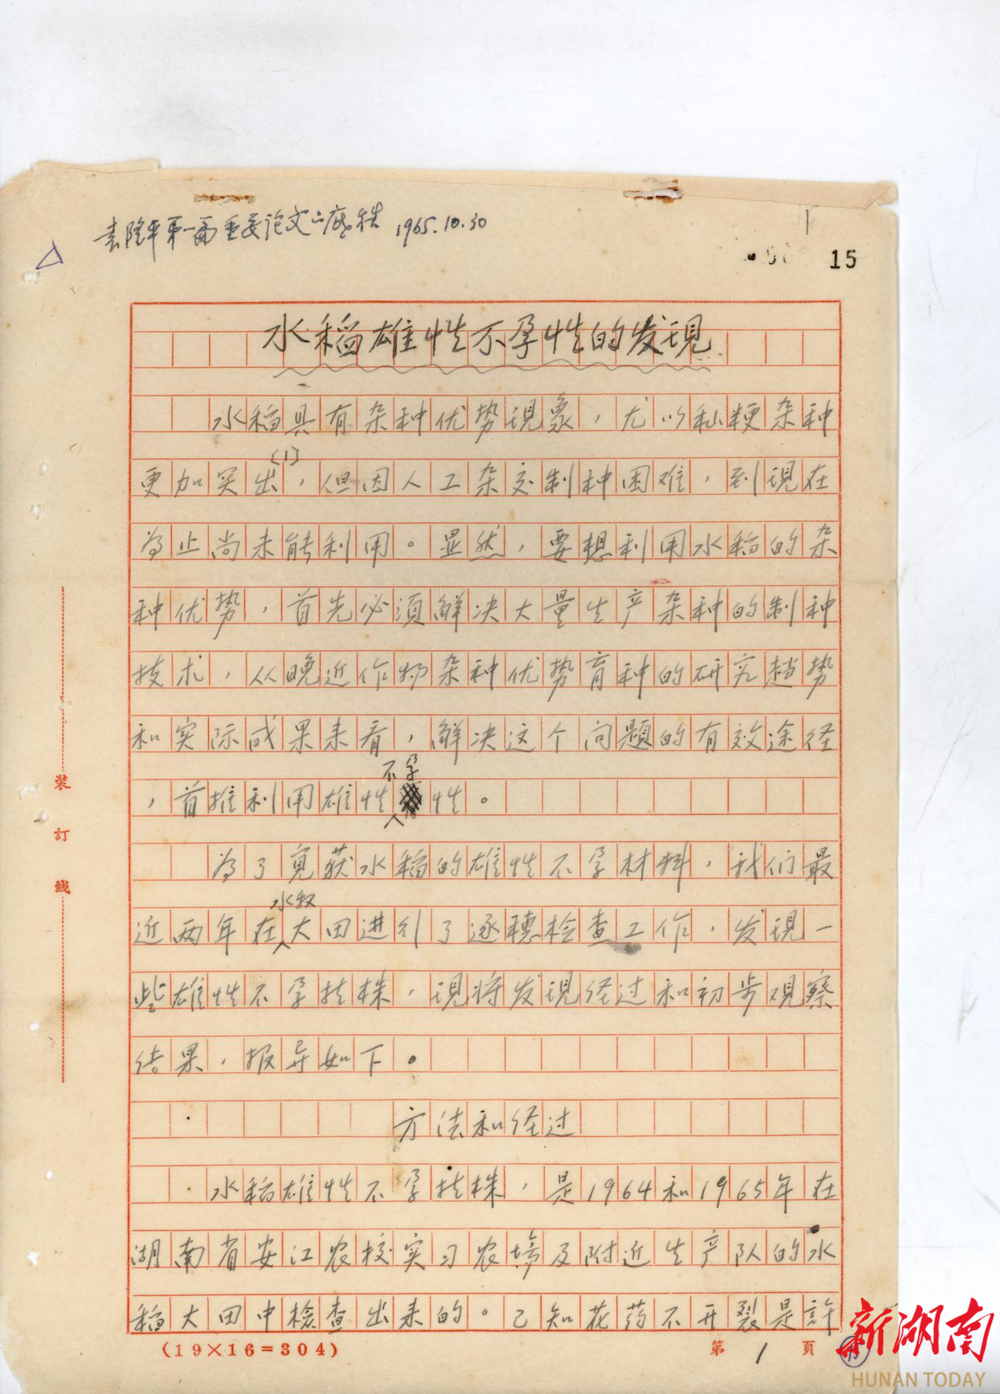 袁隆平第一篇重要论文的底稿 1965.10.30
15
水稻雄性不孕性的发現
水稻具有杂种优势現象，尤以籼粳杂种
更加突出(1)，但因人工杂交制种困难，到現在
为止尚未能利用。显然，要想利用水稻的杂
种优势，首先必須解决大量生产杂种的制种
技术，从晚近作物杂种优势育种的研究趋势
和实际成果来看，解决这个问題的有效途径
，首推利用雄性不孕性。
为了寛获水稻的雄性不孕材料，我们最
近两年在水稻大田进行了逐穗检查工作，发現一
些雄性不孕植株，現将发現经过和初步观察
结果，报导如下。
方法和经过
水稻雄性不孕植株，是1964和1965年在
湖南省安江农校实习农場及附近生产队的水
稻大田中检查出来的。已知花药不开裂是許
(19×16=304)
第 1 頁
裝訂线
新湖南
HUNAN TODAY